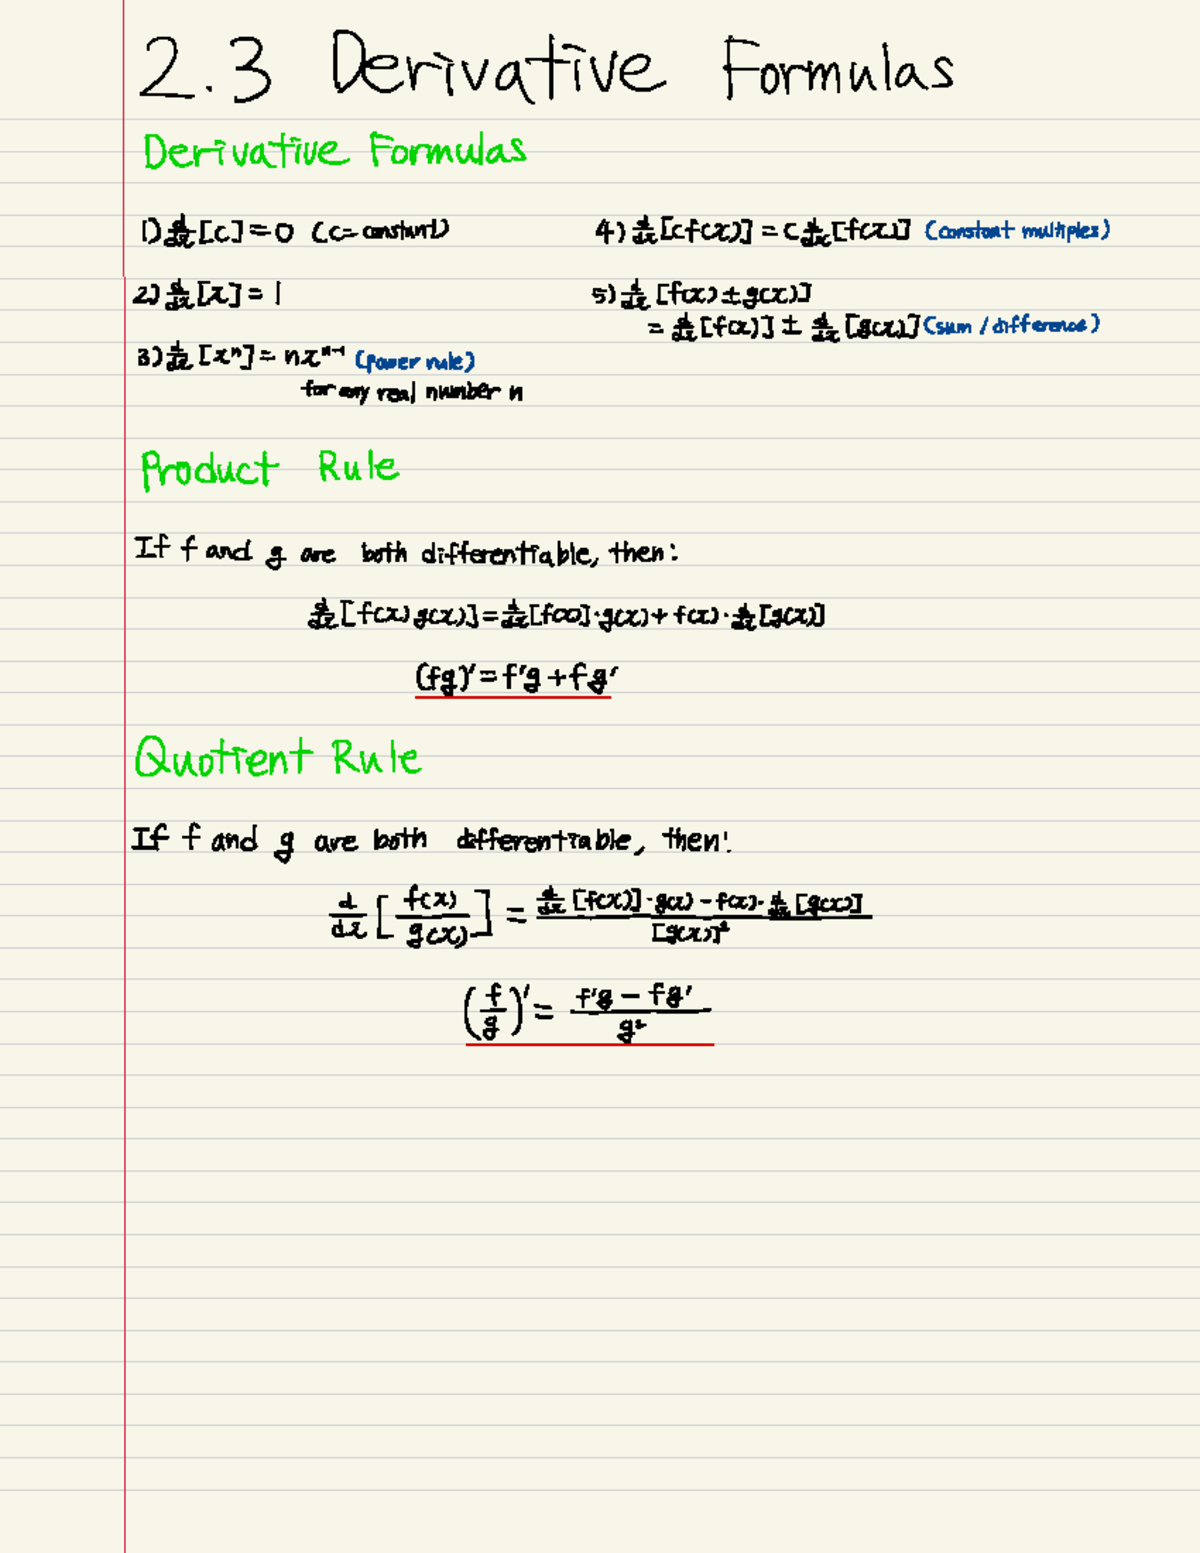 2.3 Derivative Formulas
Derivative Formulas
1) d/dx [c] = 0 (c = constant)
2) d/dx [x] = 1
3) d/dx [xⁿ] = nxⁿ⁻¹ (power rule)
for any real number n
4) d/dx [cf(x)] = c d/dx [f(x)] (constant multiples)
5) d/dx [f(x) ± g(x)]
= d/dx [f(x)] ± d/dx [g(x)] (sum / difference)
Product Rule
If f and g are both differentiable, then:
d/dx [f(x) g(x)] = d/dx [f(x)] · g(x) + f(x) · d/dx [g(x)]
(fg)' = f'g + fg'
Quotient Rule
If f and g are both differentiable, then:
d/dx [f(x)/g(x)] = (d/dx [f(x)] · g(x) − f(x) · d/dx [g(x)]) / [g(x)]²
(f/g)' = (f'g − fg') / g²